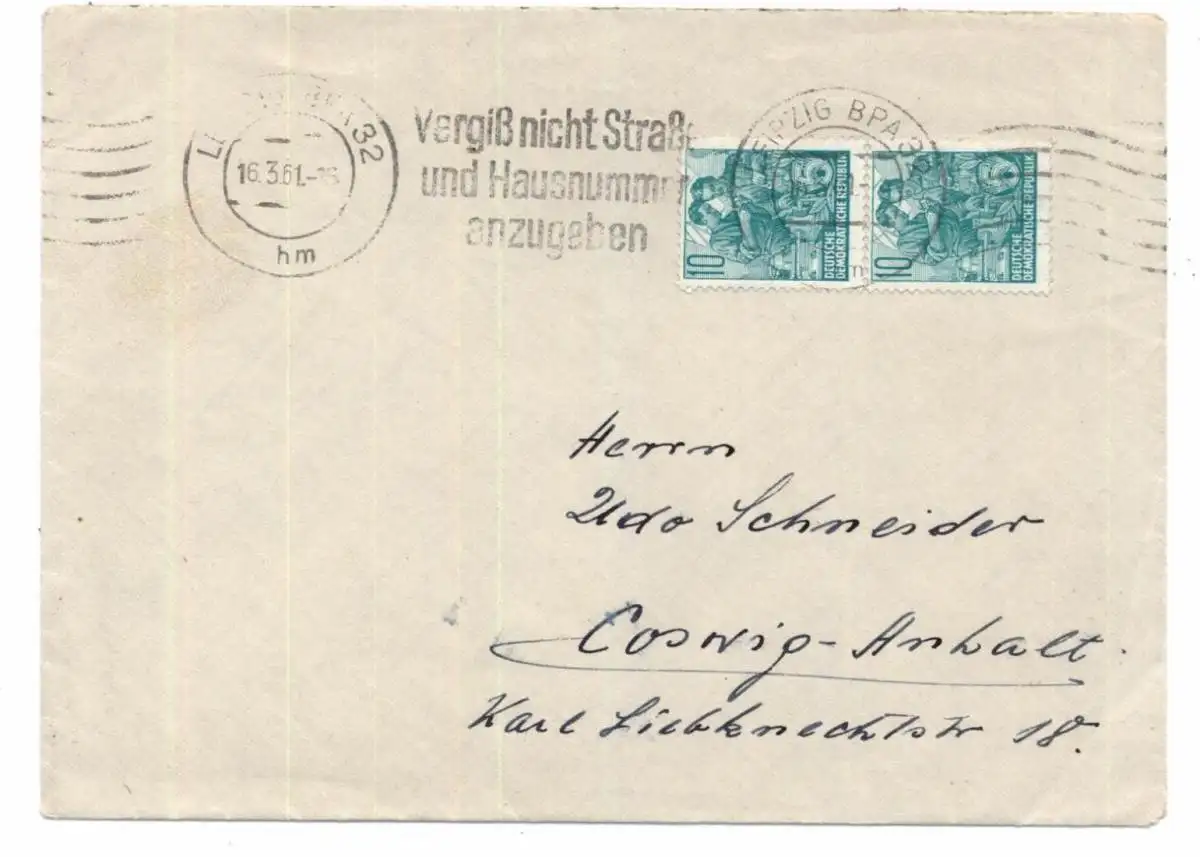 32
16.3.61.-
hm
Vergiß nicht Straße
und Hausnummer
anzugeben
LEIPZIG BPA 32
10
5
DEUTSCHE
DEMOKRATISCHE REPUBLIK
10
5
DEUTSCHE
DEMOKRATISCHE REPUBLIK
Herrn
Udo Schneider
Coswig-Anhalt.
Karl Liebknechtstr 18.